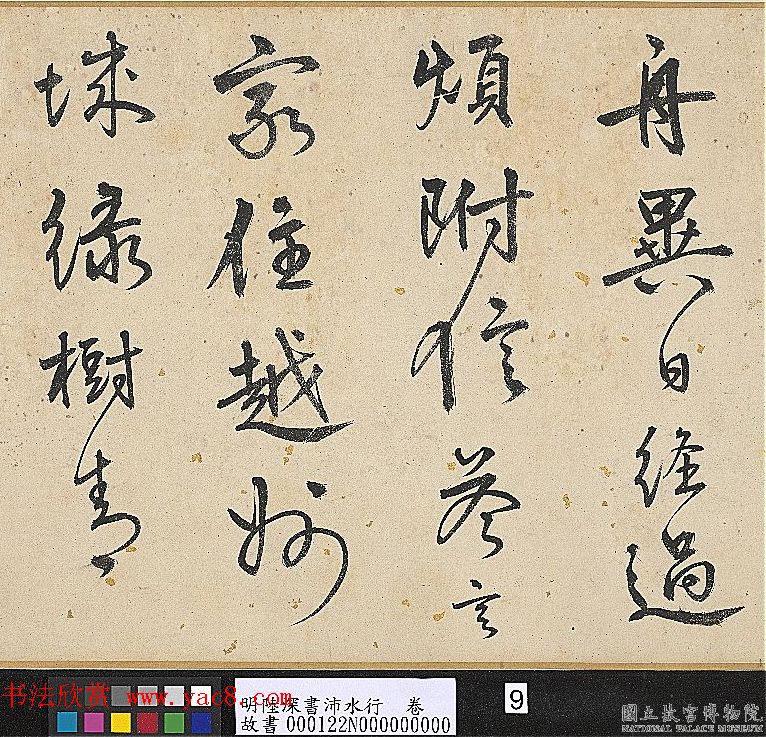 舟異日經過
煩附信荅言
家住越州
城緑樹青
书法欣赏 www.yac8.com
明陸深書沛水行 卷
故書 000122N000000000
9
國立故宮博物院
NATIONAL PALACE MUSEUM